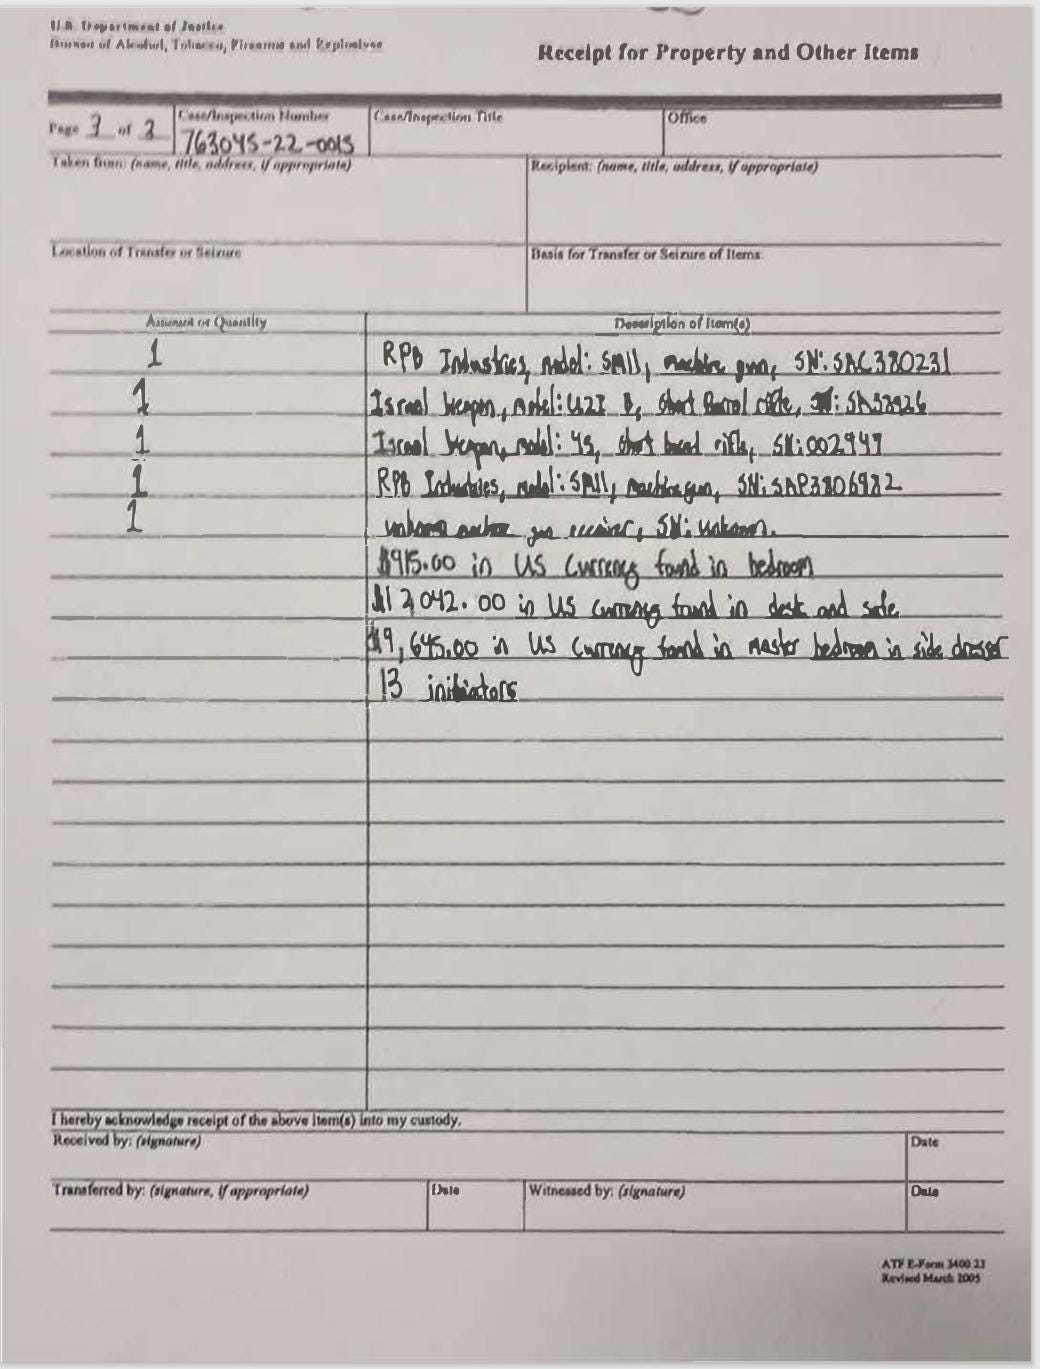 U.S. Department of Justice
Bureau of Alcohol, Tobacco, Firearms and Explosives
Receipt for Property and Other Items
Page 3 of 3
Case/Inspection Number
763045-22-0015
Case/Inspection Title
Office
Taken from: (name, title, address, if appropriate)
Recipient: (name, title, address, if appropriate)
Location of Transfer or Seizure
Basis for Transfer or Seizure of Items:
Amount or Quantity
Description of Item(s)
1 RPB Industries, model: SM11, machine gun, SN: SAC380231
1 Israel Weapon, model: UZI B, short barrel rifle, SN:
1 Israel Weapon, model: 45, short barrel rifle, SN: 002949
1 RPB Industries, model: SM11, machine gun, SN: SAP3806982
1 unknown machine gun receiver, SN: unknown.
$915.00 in US Currency found in bedroom
in US currency found in desk and safe
in US Currency found in master bedroom in side dresser
13 initiators
I hereby acknowledge receipt of the above item(s) into my custody.
Received by: (signature)
Date
Transferred by: (signature, if appropriate)
Date
Witnessed by: (signature)
Date
ATF E-Form 3400 23
Revised March 2005